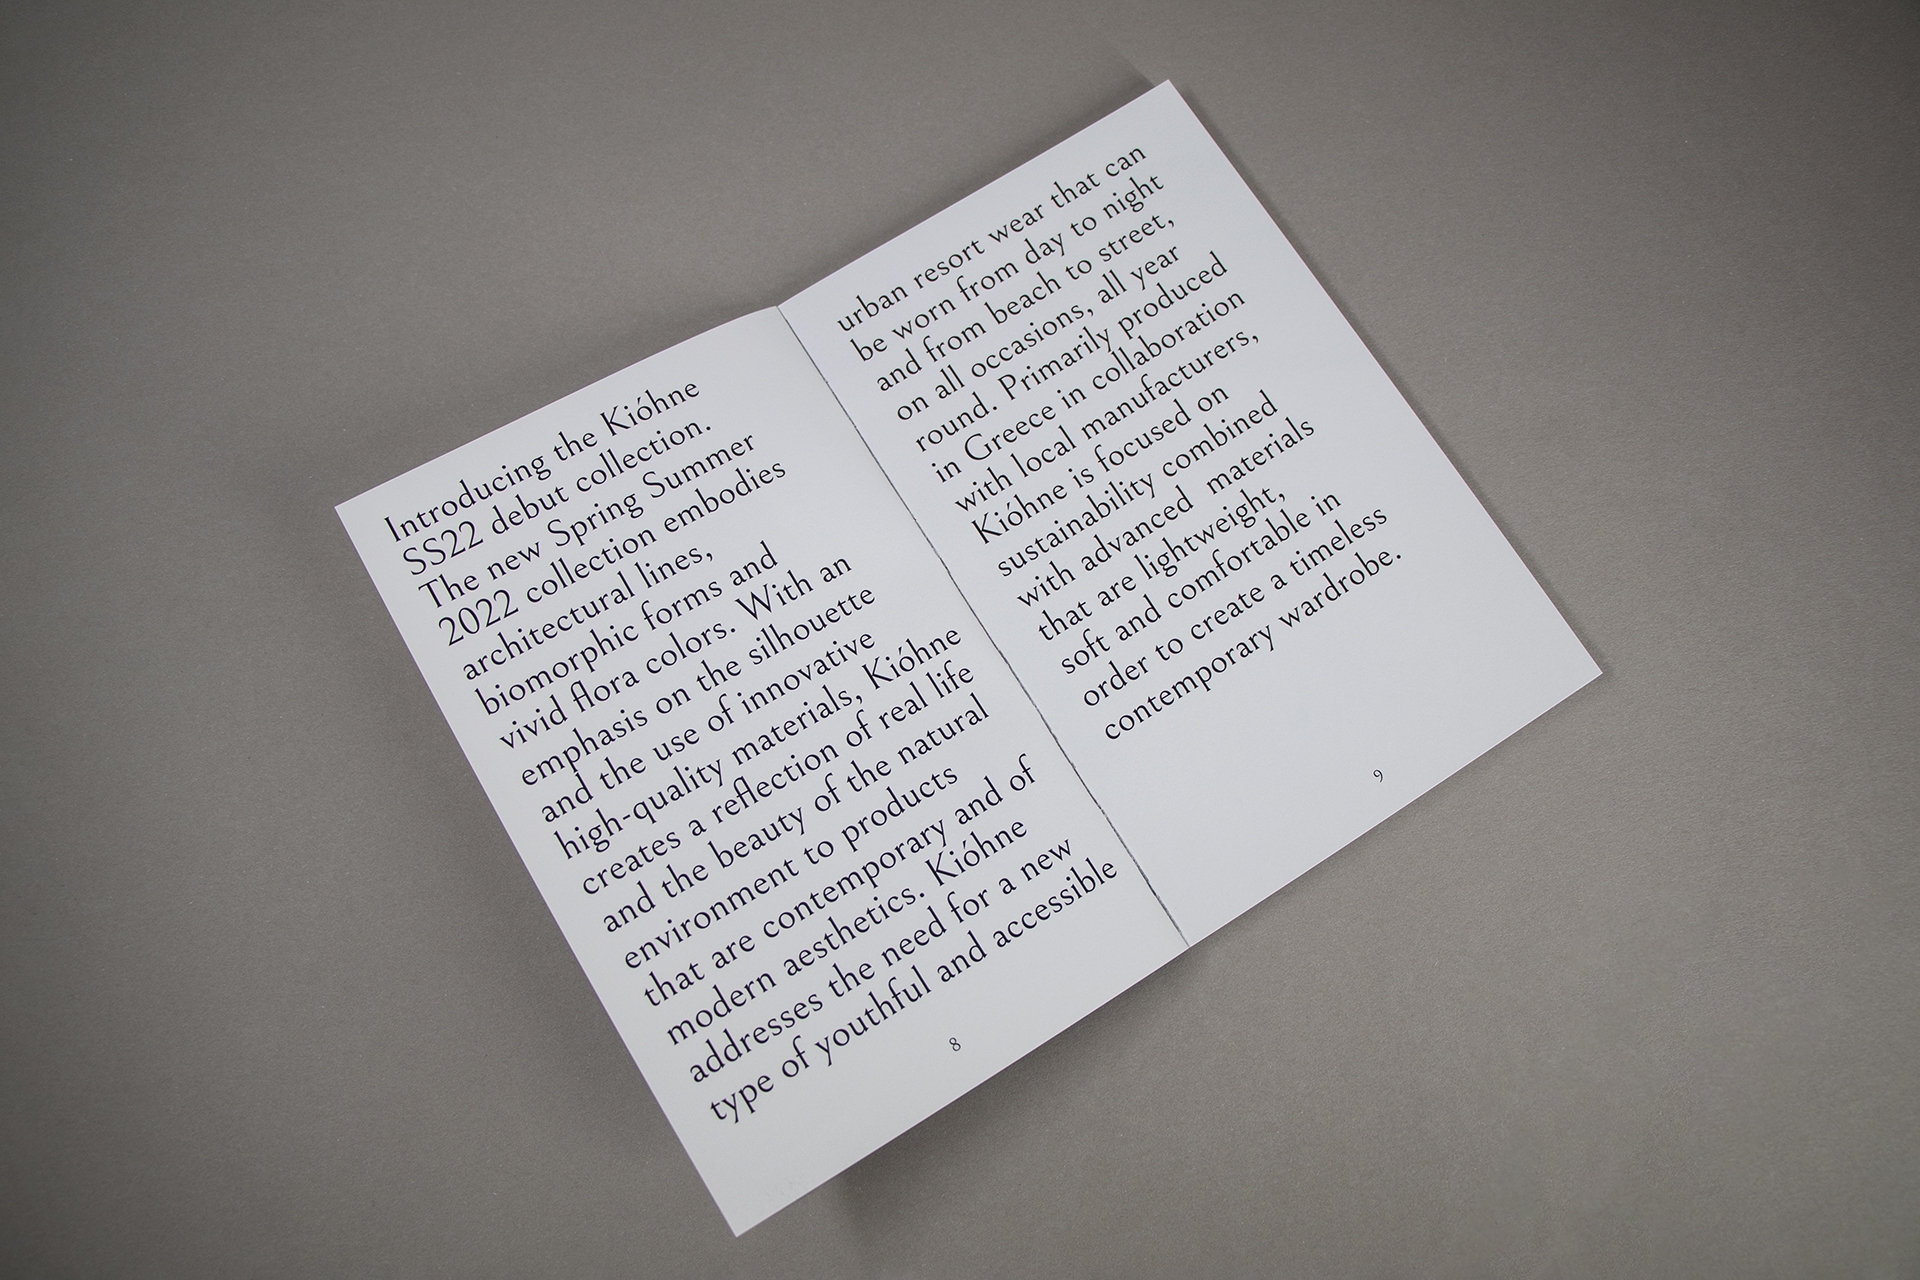 Introducing the Kióhne
SS22 debut collection.
The new Spring Summer
2022 collection embodies
architectural lines,
biomorphic forms and
vivid flora colors. With an
emphasis on the silhouette
and the use of innovative
high-quality materials, Kióhne
creates a reflection of real life
and the beauty of the natural
environment to products
that are contemporary and of
modern aesthetics. Kióhne
addresses the need for a new
type of youthful and accessible
8
urban resort wear that can
be worn from day to night
and from beach to street,
on all occasions, all year
round. Primarily produced
in Greece in collaboration
with local manufacturers,
Kióhne is focused on
sustainability combined
with advanced materials
that are lightweight,
soft and comfortable in
order to create a timeless
contemporary wardrobe.
9